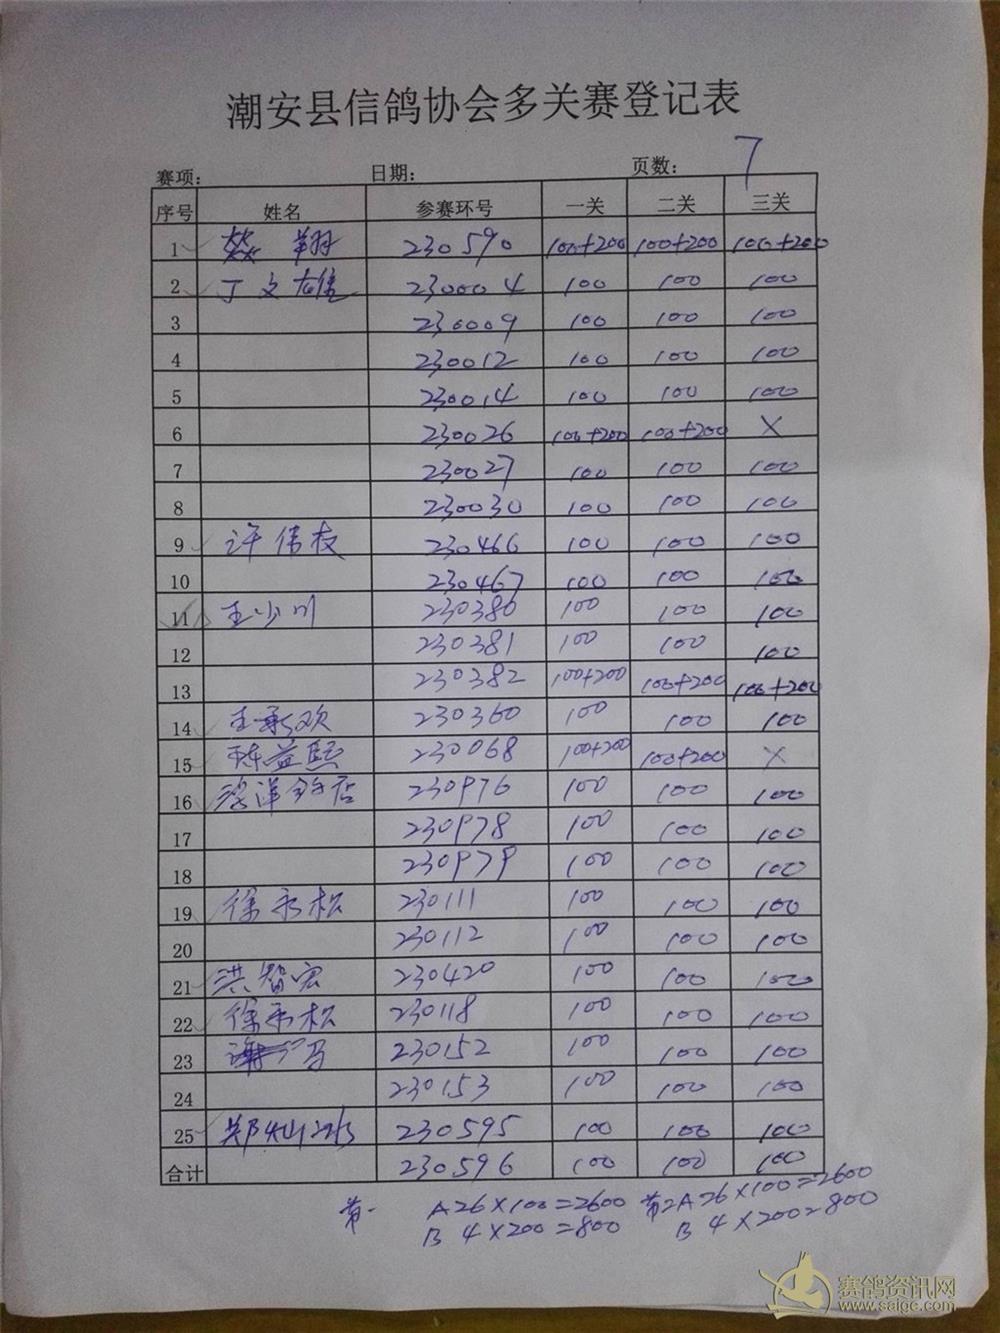 潮安县信鸽协会多关赛登记表
7
赛项： 日期： 页数：
序号 姓名 参赛环号 一关 二关 三关
1 翔 230590 100+200 100+200 100+200
2 丁文雄 230004 100 100 100
3 230009 100 100 100
4 230012 100 100 100
5 230014 100 100 100
6 230026 100+200 100+200 X
7 230027 100 100 100
8 230030 100 100 100
9 许伟枝 230466 100 100 100
10 230467 100 100 100
11 王少川 230380 100 100 100
12 230381 100 100 100
13 230382 100+200 100+200 100+200
14 王永欢 230360 100 100 100
15 益熙 230068 100+200 100+200 X
16 洋 店 230976 100 100 100
17 230978 100 100 100
18 230979 100 100 100
19 徐永松 230111 100 100 100
20 230112 100 100 100
21 洪智宏 230420 100 100 100
22 徐永松 230118 100 100 100
23 230152 100 100 100
24 230153 100 100 100
25 郑灿 230595 100 100 100
合计 230596 100 100 100
第一 A 26×100=2600 第2 A 26×100=2600
B 4×200=800 B 4×200=800
赛鸽资讯网
www.saige.com